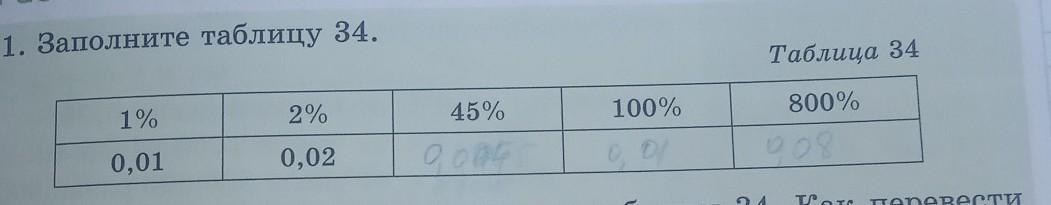 1. Заполните таблицу 34.
Таблица 34
1% 2% 45% 100% 800%
0,01 0,02 0,01 0,08
перевести